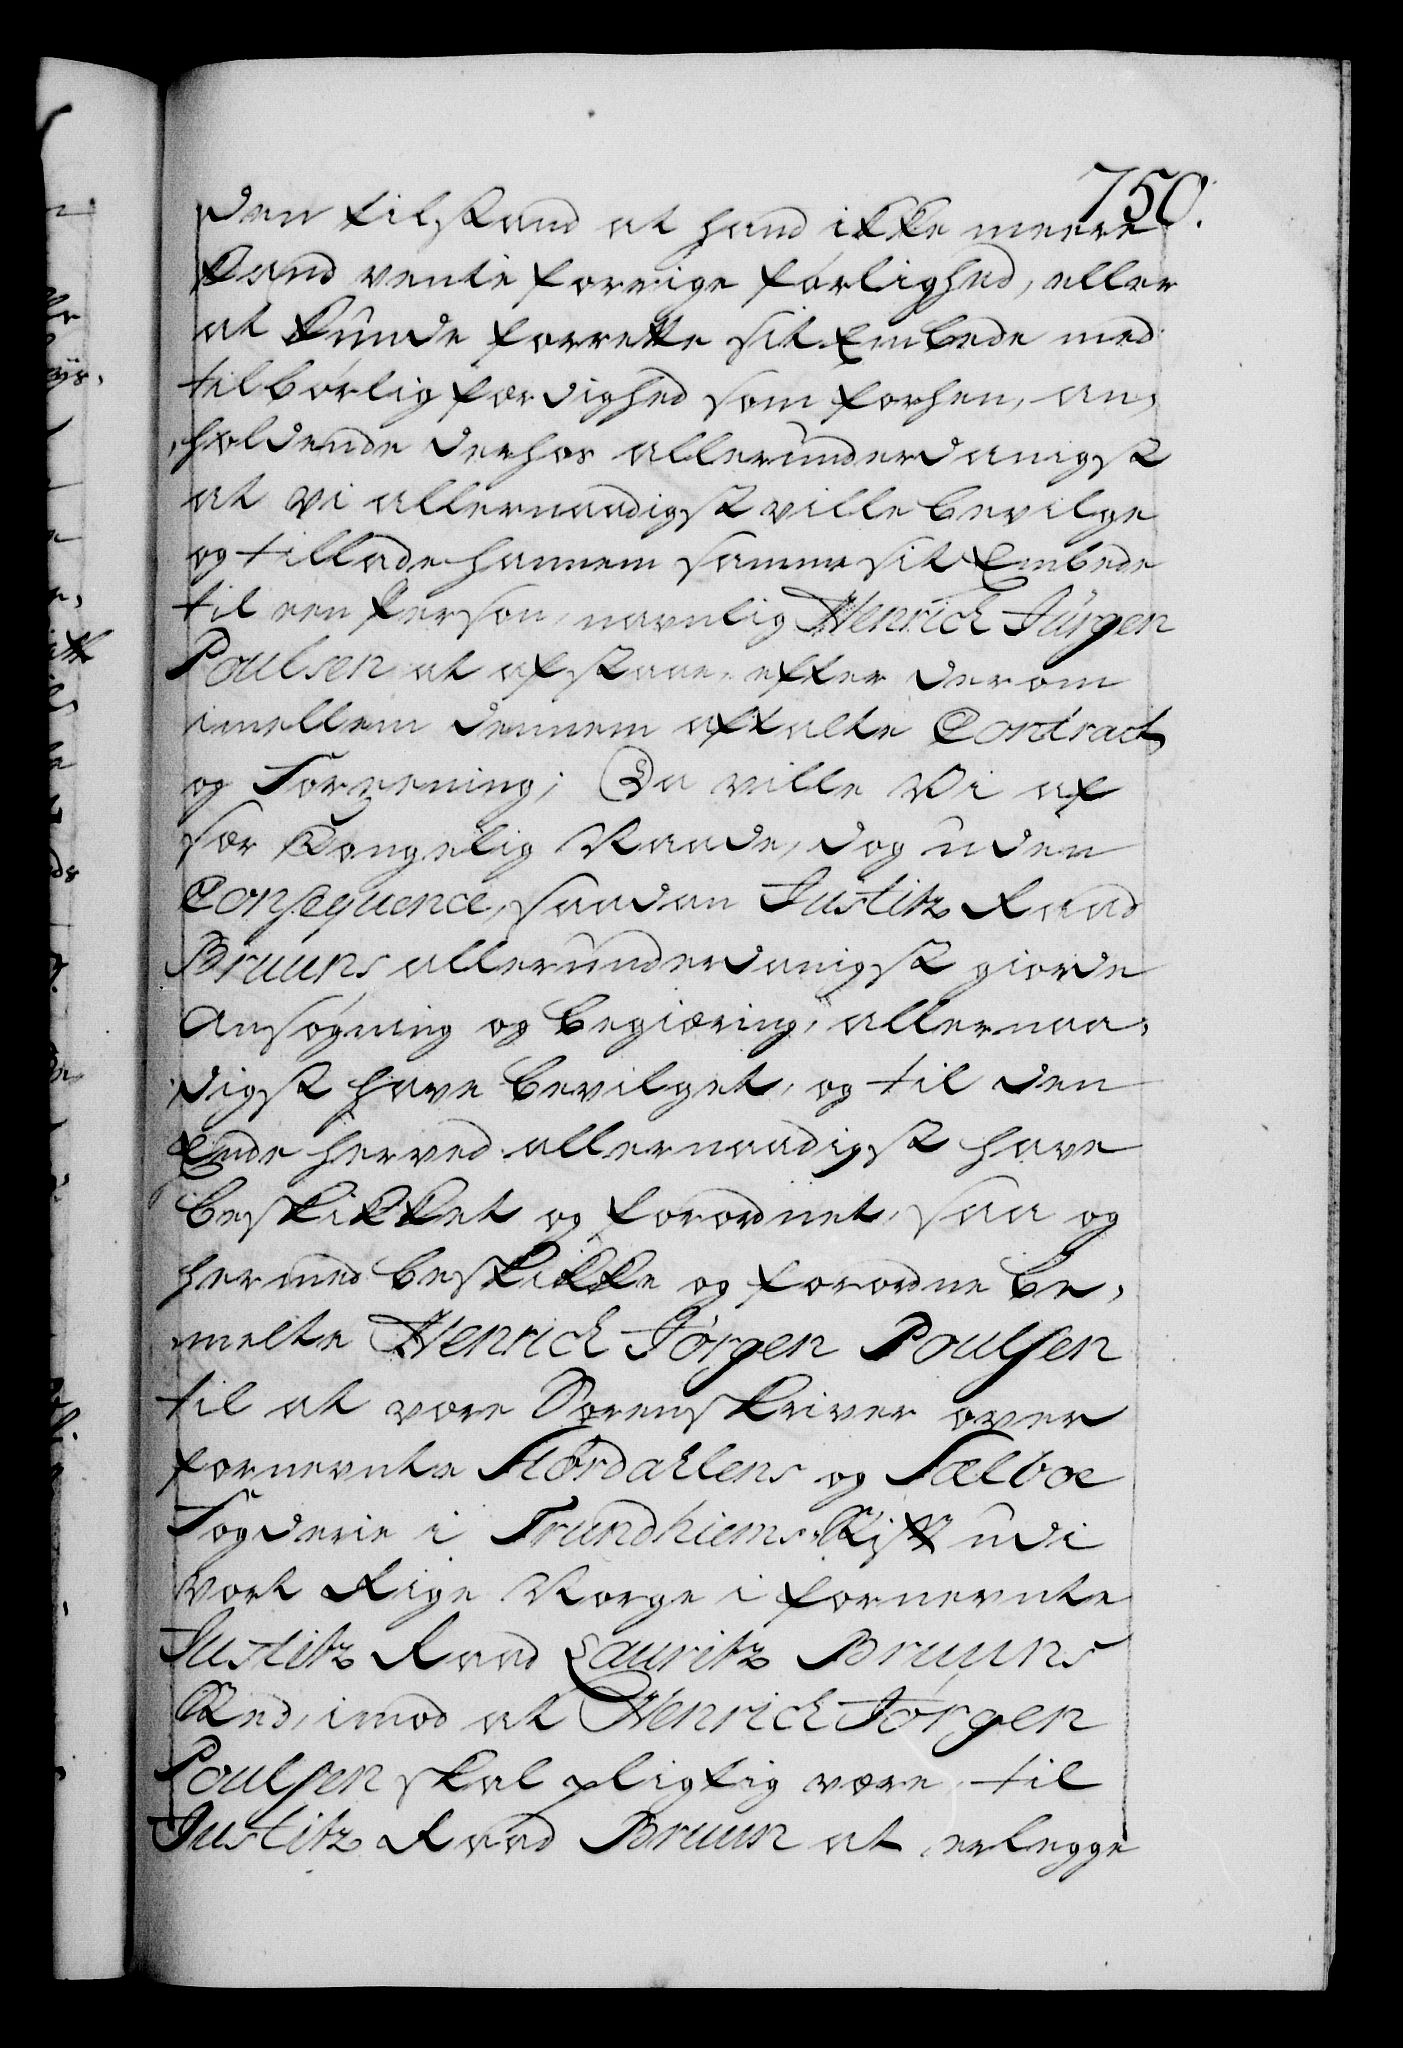 750.
den tilstand at hand ikke meere
kand vente forrige førlighed, eller
at kunde forrette sit Embede med
tilbørlig færdighed som forhen, an,
,holdende derhos allerunderdanigst
at vi allernaadigst ville bevilge
og tillade hannem samme sit Embede
til een Person, navnlig Henrich Jürgen
Poulsen at afstaae, efter derom
imellem dennem aftalte Contract
og Foreening; Da ville Vi af
sær Kongelig Naade, dog uden
Consequence, saadan Justitz Raad
Bruuns allerunderdanigst giorde
Ansøgning og begiæring, allernaa,
digst have bevilget, og til den
Ende herved allernaadigst have
beskikket og forordnet, saa og
hermed beskikke og forordne be,
melte Henrich Jørgen Poulsen
til at være Sorenskriver over
fornevnte Størdahlens og Sælboe
Fogderie i Trundhiems Stift udi
vort Rige Norge i fornevnte
Justitz Raad Lauritz Bruuns
Sted, imod at Henrich Jørgen
Poulsen skal pligtig være, til
Justitz Raad Bruun at erlegge